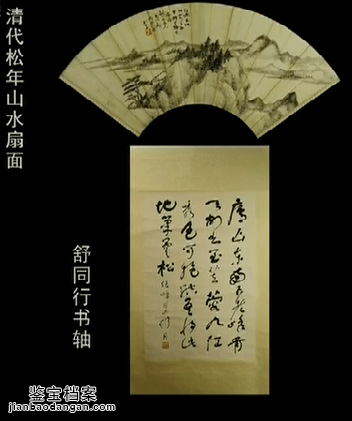 清代松年山水扇面
舒同行书轴
庐山东南五老峰青
天削出金芙蓉九江
秀色可揽结吾将此
地巢云松
鉴宝档案
jianbaodangan.com